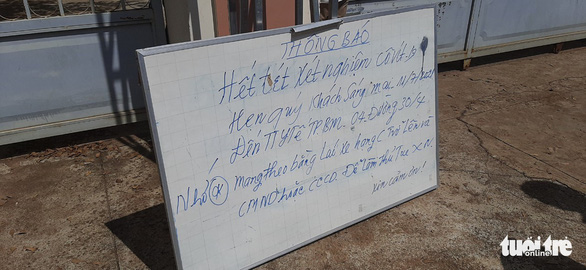 THÔNG BÁO
Hết tét xét nghiệm CôVít-19
Hẹn quý khách sáng mai 11/7/2021
Đến TT Y Tế TP BM. 04. Đường 30/4.
Nhớ mang theo bằng Lái xe hạng C Trở Lên và
CMND hoặc CCCD. Để làm thủ tục XN.
Xin cảm ơn!
tuổi trẻ
online